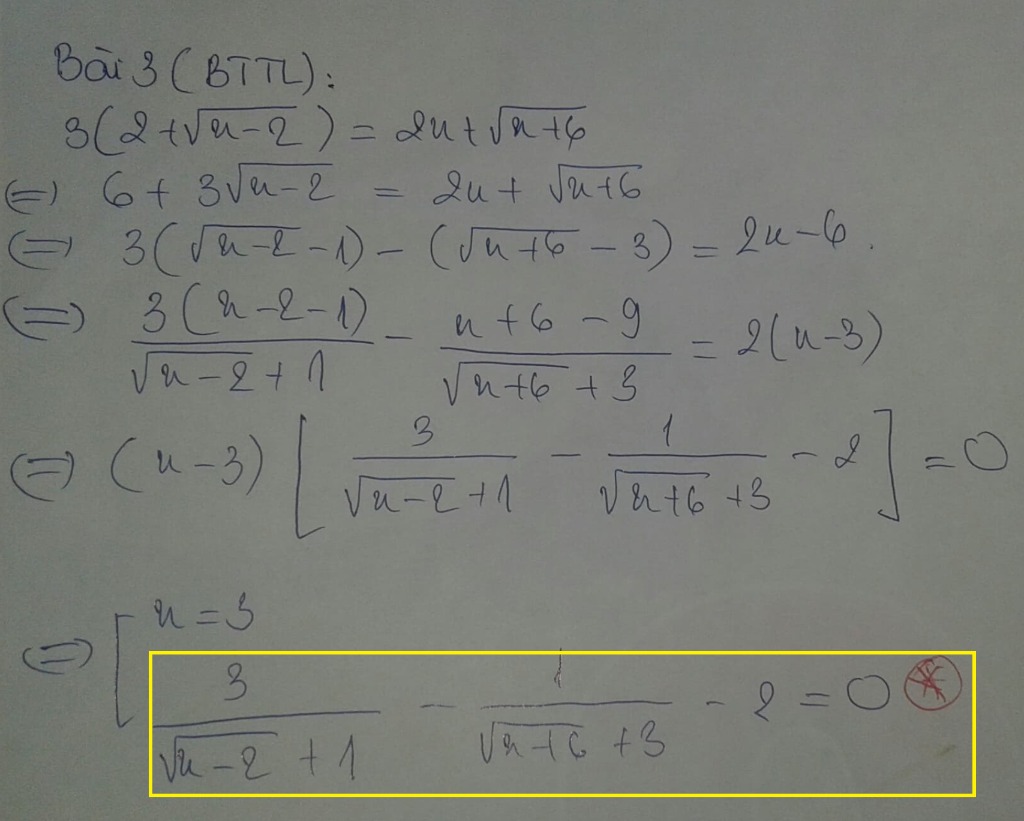 Bài 3 (BTTL):
3(2+√x-2) = 2x+√x+6
(=) 6 + 3√x-2 = 2x + √x+6
(=) 3(√x-2 -1) - (√x+6 - 3) = 2x-6.
(=) 3(x-2-1)/√x-2 + 1 - x+6-9/√x+6 + 3 = 2(x-3)
(=) (x-3) [3/√x-2 +1 - 1/√x+6 +3 - 2] = 0
(=) [ x=3
3/√x-2 + 1 - 1/√x+6 +3 - 2 = 0 (*)